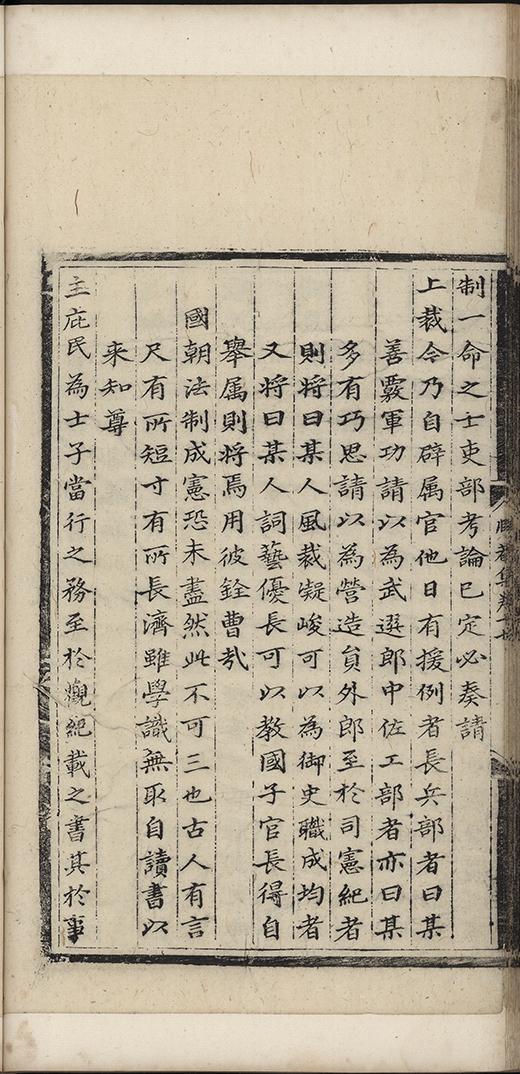 制一命之士吏部考論已定必奏請
上裁今乃自辟属官他日有援例者長兵部者曰某
善覈軍功請以為武選郎中佐工部者亦曰某
多有巧思請以為營造負外郎至於司憲紀者
則將曰某人風裁凝峻可以為御史職成均者
又將曰某人詞藝優長可以教國子官長得自
舉属則將焉用彼銓曹㢤
國朝法制成憲恐未盡然此不可三也古人有言
尺有所短寸有所長濟雖學識無取自讀書以
來知尊
主庇民為士子當行之務至於觀紀載之書其於事